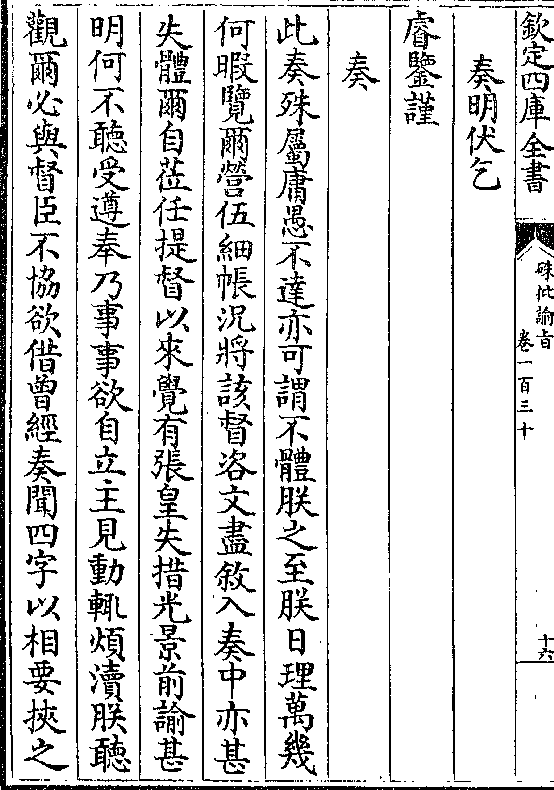 欽定四庫全書
硃批諭旨
卷一百三十
十六
奏明伏乞
睿鑒謹
奏
此奏殊屬庸愚不達亦可謂不體朕之至朕日理萬幾
何暇覽爾營伍細帳況將該督咨文盡敘入奏中亦甚
失體爾自蒞任提督以來覺有張皇失措光景前諭甚
明何不聽受遵奉乃事事欲自立主見動輒煩瀆朕聽
觀爾必與督臣不協欲借曾經奏聞四字以相要挾之